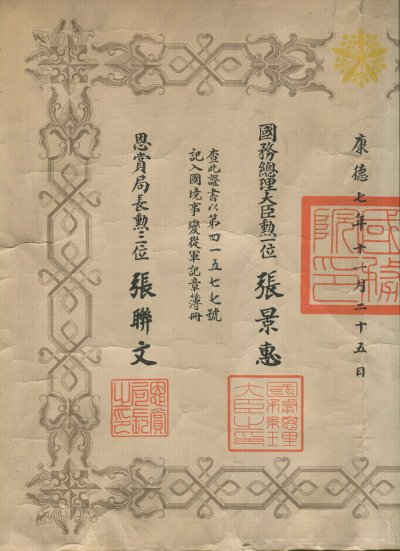 康德七年十一月二十五日
國務院印
國務總理大臣勳一位 張景惠
查此證書以第四一五七七號
記入國境事變從軍記章簿冊
恩賞局長勳三位 張聯文
恩賞局長之印